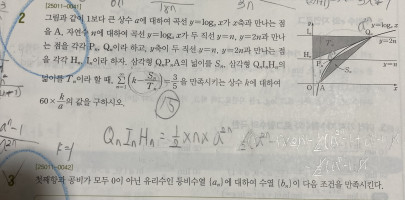 [25011-0041]
2
그림과 같이 1보다 큰 상수 a에 대하여 곡선 y=logₐ x가 x축과 만나는 점
을 A, 자연수 n에 대하여 곡선 y=logₐ x가 두 직선 y=n, y=2n과 만나
는 점을 각각 Pₙ, Qₙ이라 하고, y축이 두 직선 y=n, y=2n과 만나는 점
을 각각 Hₙ, Iₙ이라 하자. 삼각형 QₙPₙA의 넓이를 Sₙ, 삼각형 QₙIₙHₙ의
넓이를 Tₙ이라 할 때, (k-Sₙ/Tₙ)=3/5을 만족시키는 상수 k에 대하여
60×k/a의 값을 구하시오.
15
y=logₐ x
y=2n
y=n
Qₙ
Hₙ
Pₙ
Sₙ
O
A
x
QₙIₙHₙ = 1/2 × n × a²ⁿ
k=1
3
[25011-0042]
첫째항과 공비가 모두 0이 아닌 유리수인 등비수열 {aₙ}에 대하여 수열 {bₙ}이 다음 조건을 만족시킨다.